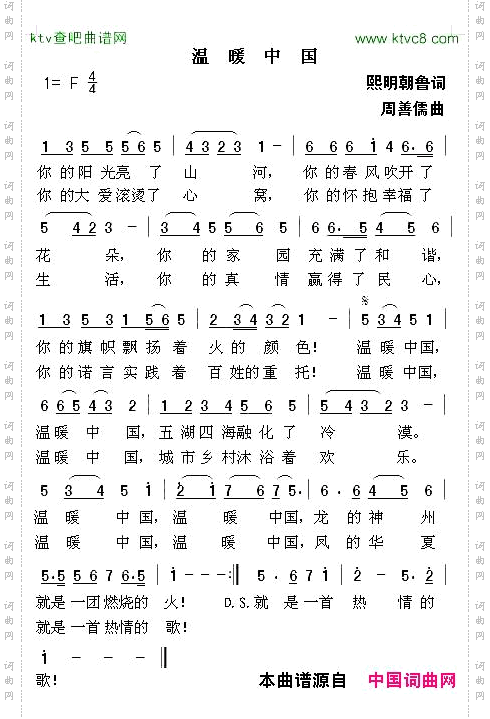 ktv查吧曲谱网
www.ktvc8.com
温 暖 中 国
1= F 4/4
熙明朝鲁词
周善儒曲
1 3 5 5 5 6 5 | 4 3 2 3 1 - | 6 6 6 1 4 6. 6 |
你 的 阳 光 亮 了 山 河, 你 的 春 风 吹 开 了
你 的 大 爱 滚 烫 了 心 窝, 你 的 怀 抱 幸 福 了
5 4 2 3 - | 3 4 5 5 6 5 | 6 6. 5 4 3 2 |
花 朵, 你 的 家 园 充 满 了 和 谐,
生 活, 你 的 真 情 赢 得 了 民 心,
1 3 5 3 1 5 6 5 | 2 3 4 3 2 - | 5 3 4 5 1 |
你 的 旗 帜 飘 扬 着 火 的 颜 色! 温 暖 中 国,
你 的 诺 言 实 践 着 百 姓 的 重 托! 温 暖 中 国,
6 6 5 4 3 2 | 1 2 3 4 5 6 6 | 5 4 3 2 3 - |
温 暖 中 国, 五 湖 四 海 融 化 了 冷 漠。
温 暖 中 国, 城 市 乡 村 沐 浴 着 欢 乐。
5 3 4 5 1 | 2 1 7 6 7 5. | 6. 6 4 5 6 |
温 暖 中 国, 温 暖 中 国, 龙 的 神 州
温 暖 中 国, 温 暖 中 国, 凤 的 华 夏
5.5 5 6 7 6.5 | 1 - - :‖ 5.5 5 2 1 | 7. 6 6 5 |
就是 一团 燃烧的 火! D.S.就 是 一首 热 情 的
就是 一首 热情的 歌!
1 - - - ‖
歌!
本曲谱源自 中国词曲网
词曲网
词曲网
词曲网
词曲网
词曲网
词曲网
词曲网
词曲网
词曲网
词曲网
词曲网
词曲网